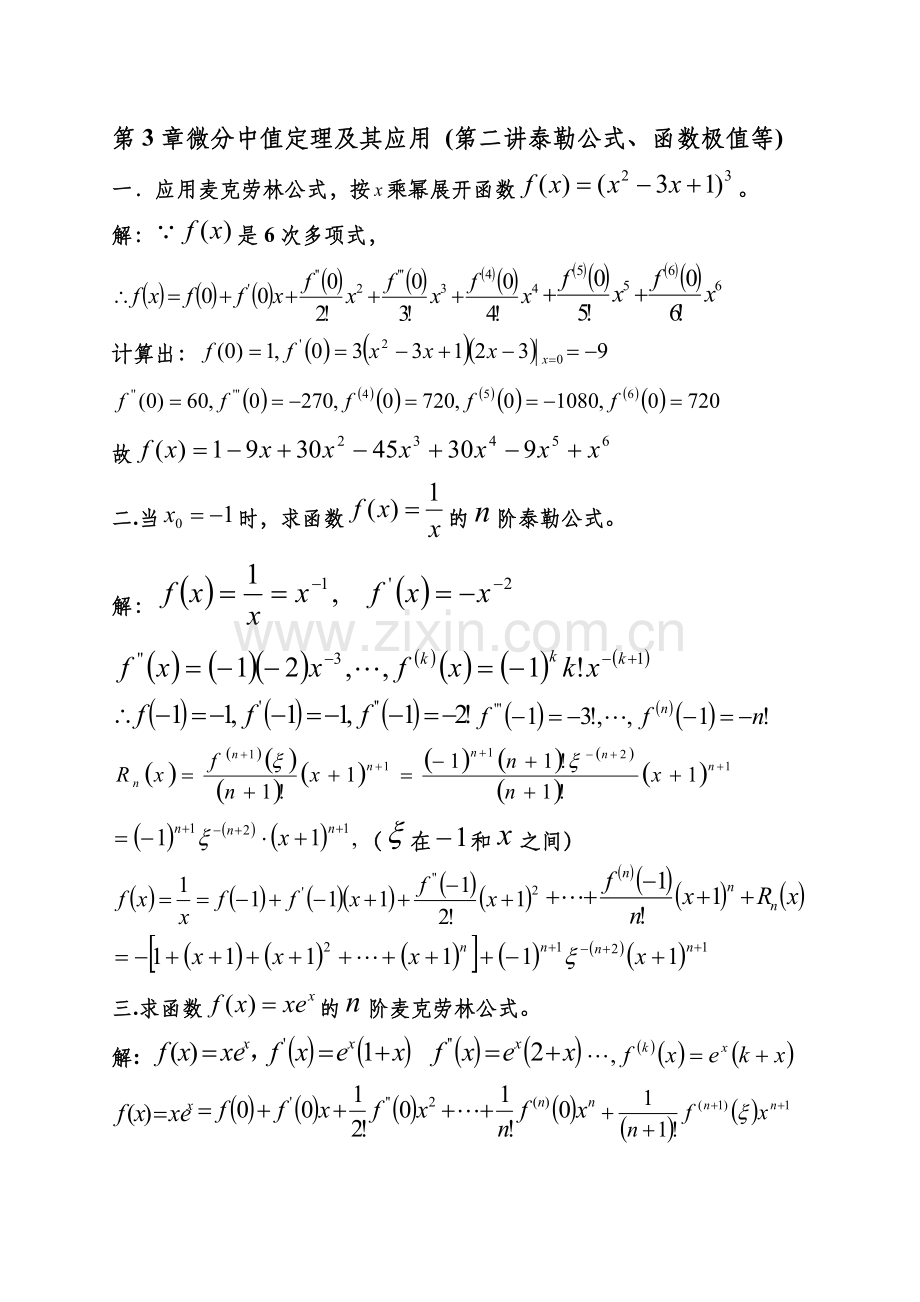 第 3 章微分中值定理及其应用 (第二讲泰勒公式、函数极值等)
一．应用麦克劳林公式，按 x 乘幂展开函数 f(x)=(x²−3x+1)³ 。
解：∵ f(x) 是 6 次多项式，
∴f(x)=f(0)+f'(0)x+f''(0)/2! x²+f'''(0)/3! x³+f⁽⁴⁾(0)/4! x⁴+f⁽⁵⁾(0)/5! x⁵+f⁽⁶⁾(0)/6! x⁶
计算出：f(0)=1, f'(0)=3(x²−3x+1)(2x−3)|x=0=−9
f''(0)=60, f'''(0)=−270, f⁽⁴⁾(0)=720, f⁽⁵⁾(0)=−1080, f⁽⁶⁾(0)=720
故 f(x)=1−9x+30x²−45x³+30x⁴−9x⁵+x⁶
二.当 x₀=−1 时，求函数 f(x)=1/x 的 n 阶泰勒公式。
解：f(x)=1/x=x⁻¹, f'(x)=−x⁻²
www.zixin.com.cn
f''(x)=(−1)(−2)x⁻³,⋯, f⁽ᵏ⁾(x)=(−1)ᵏk!x^−(k+1)
∴f(−1)=−1, f'(−1)=−1, f''(−1)=−2! f'''(−1)=−3!,⋯, f⁽ⁿ⁾(−1)=−n!
Rₙ(x)=f⁽ⁿ⁺¹⁾(ξ)/(n+1)! (x+1)ⁿ⁺¹ = (−1)ⁿ⁺¹(n+1)!ξ^−(n+2)/(n+1)! (x+1)ⁿ⁺¹
=(−1)ⁿ⁺¹ξ^−(n+2)·(x+1)ⁿ⁺¹,（ξ 在 −1 和 x 之间）
f(x)=1/x=f(−1)+f'(−1)(x+1)+f''(−1)/2! (x+1)²+⋯+f⁽ⁿ⁾(−1)/n! (x+1)ⁿ+Rₙ(x)
=−[1+(x+1)+(x+1)²+⋯+(x+1)ⁿ]+(−1)ⁿ⁺¹ξ^−(n+2)(x+1)ⁿ⁺¹
三.求函数 f(x)=xeˣ 的 n 阶麦克劳林公式。
解：f(x)=xeˣ，f'(x)=eˣ(1+x) f''(x)=eˣ(2+x)⋯, f⁽ᵏ⁾(x)=eˣ(k+x)
f(x)=xeˣ=f(0)+f'(0)x+1/2! f''(0)x²+⋯+1/n! f⁽ⁿ⁾(0)xⁿ+1/(n+1)! f⁽ⁿ⁺¹⁾(ξ)xⁿ⁺¹